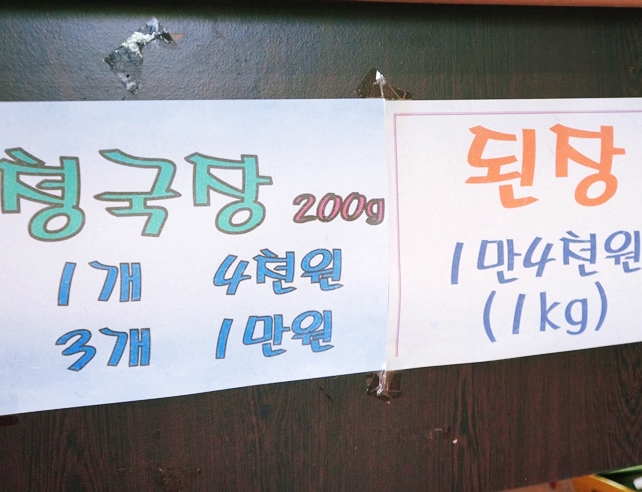 청국장 200g
1개 4천원
3개 1만원
된장
1만4천원
(1kg)